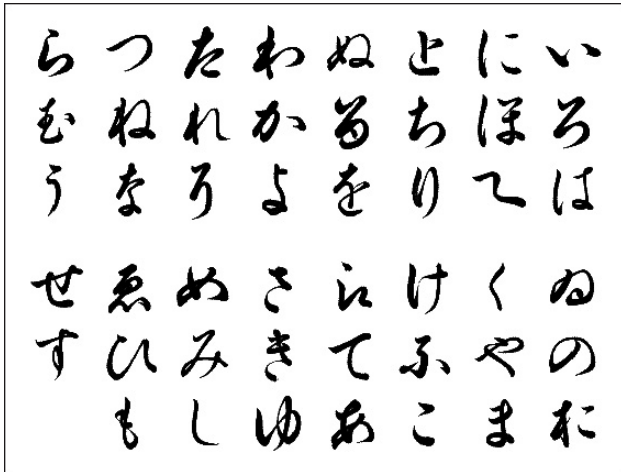 いろは
にほへ
とちり
ぬるを
わかよ
たれそ
つねな
らむう
ゐのお
くやま
けふこ
えてあ
さきゆ
めみし
ゑひも
せす